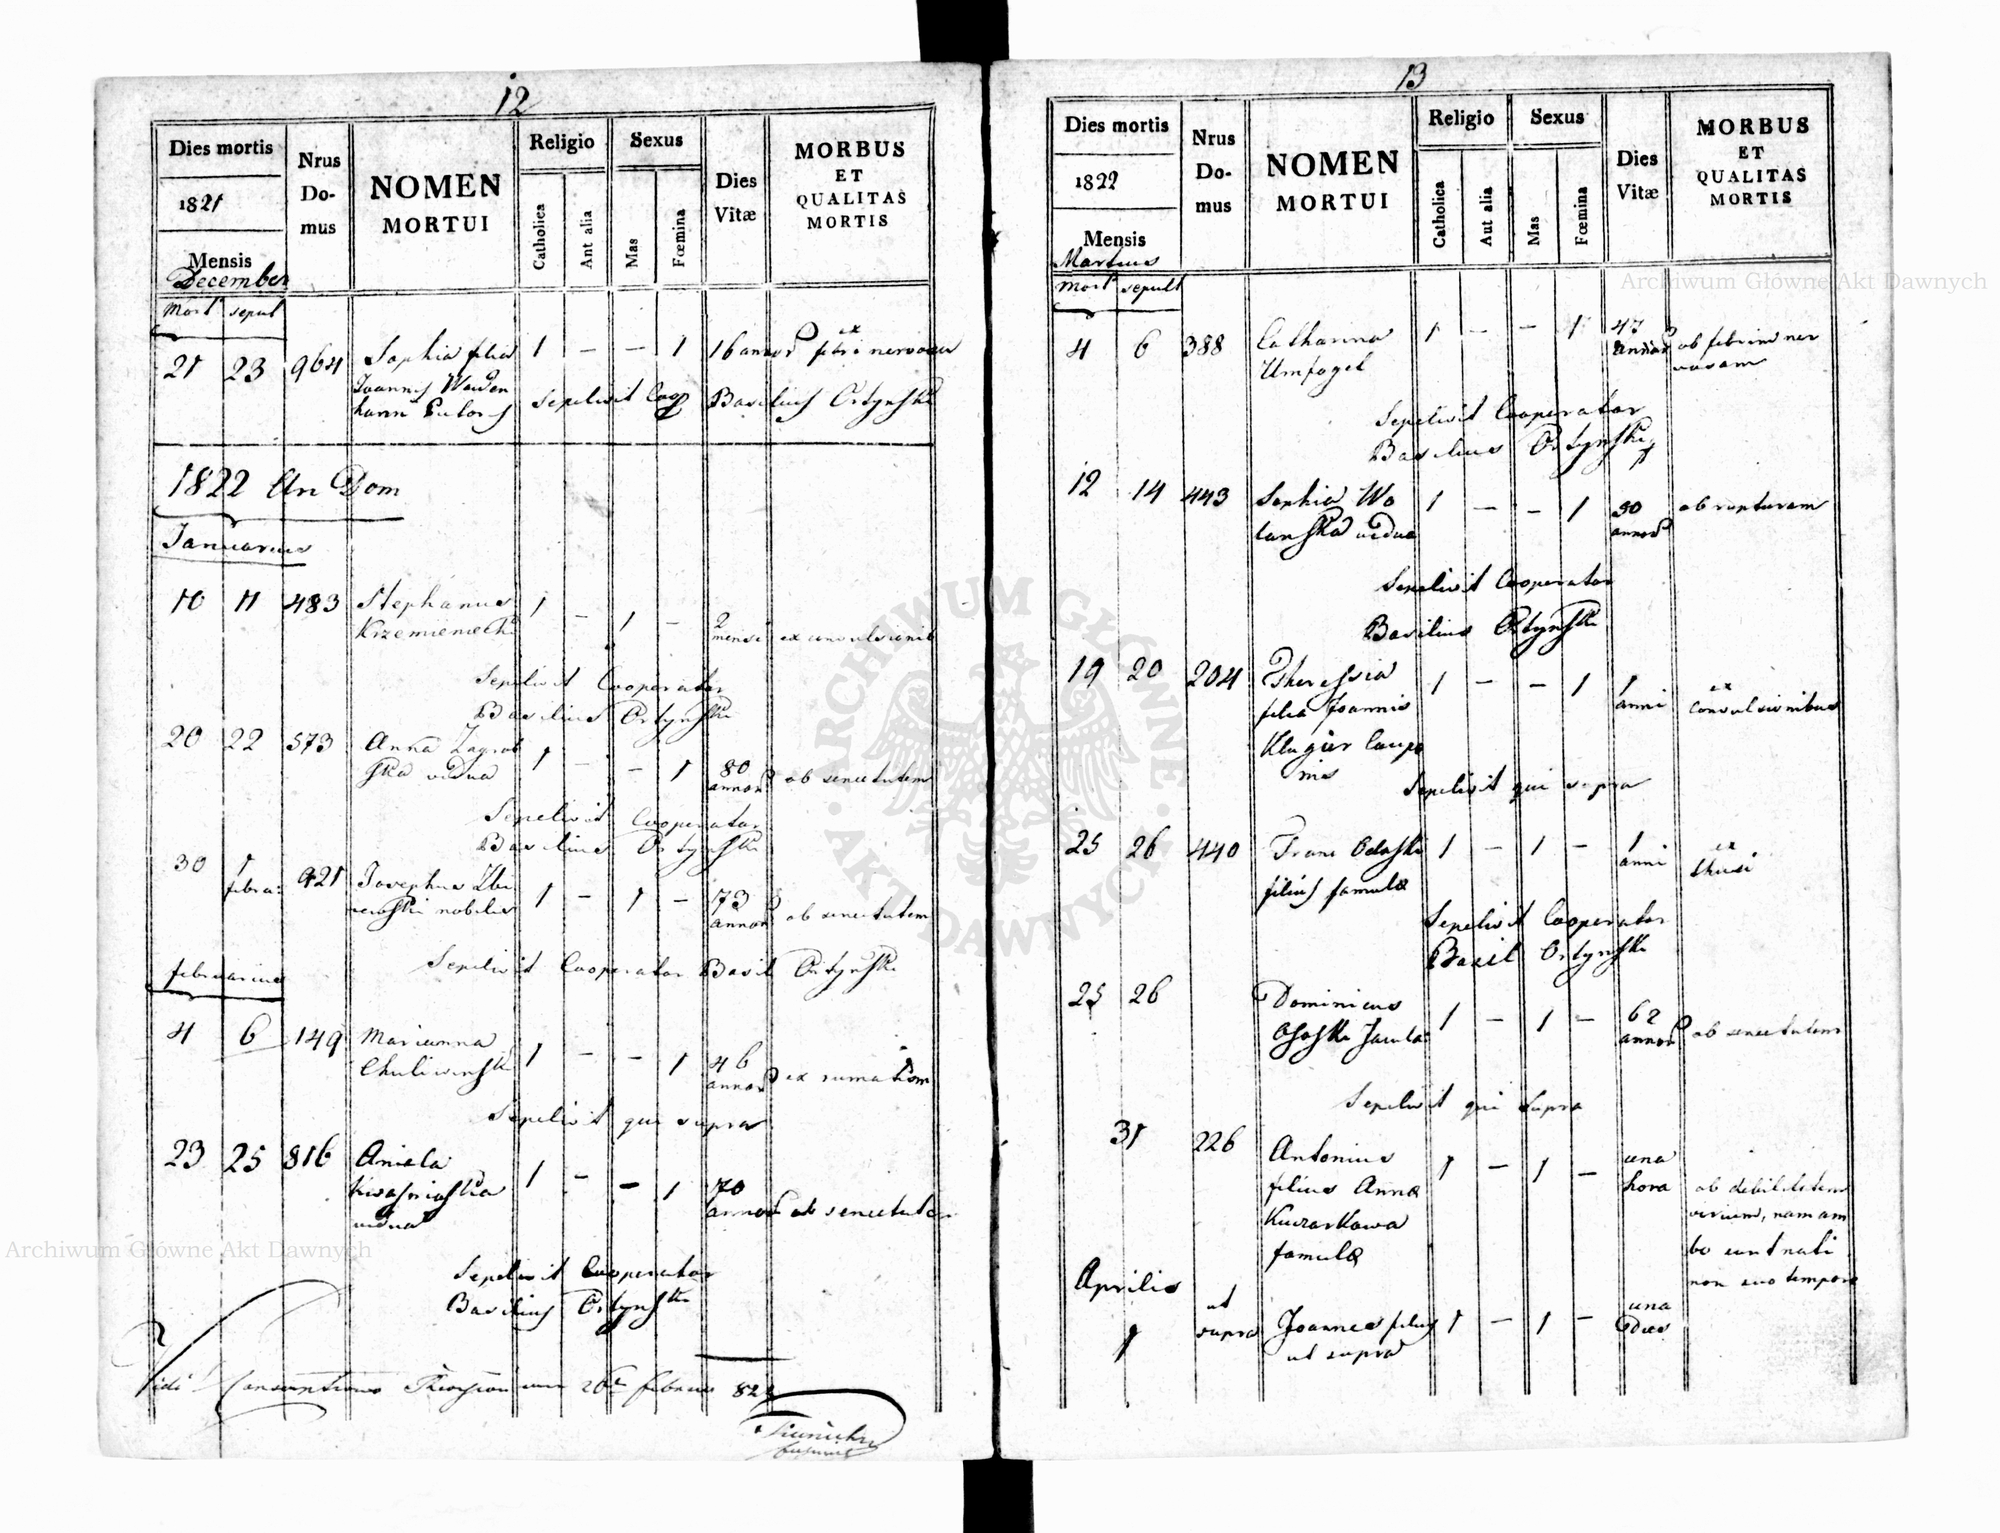 12
Dies mortis
1821
Mensis
December
Nrus
Do-
mus
NOMEN
MORTUI
Religio
Catholica
Aut alia
Sexus
Mas
Fœmina
Dies
Vitæ
MORBUS
ET
QUALITAS
MORTIS
Mort sepult
21 23 964 Sophia filia 1 — — 1 16 annor ex febri nervosa
Joannis
Sepelivit Coop Basilius Ortynski
1822 An Dom
Januarius
10 11 483 Stephanus 1 — 1 — 2
Krzemieniecki mensi ex convulsionib
Sepelivit Cooperator
Basilius Ortynski
20 22 573 Anna Zagrob 1 — — 1 80
ska vidua annor ob senectutem
Sepelivit Cooperator
Basilius Ortynski
30 1 921 Josephus 1 — 1 — 73
febru: nobilis annor ob senectutem
Sepelivit Cooperator Basil Ortynski
februarius
4 6 149 Marianna 1 — — 1 46
annor ex
Sepelivit qui supra
23 25 816 Aniela 1 — — 1 70
vidua annor ob senectutem
Sepelivit Cooperator
Basilius Ortynski
13
Dies mortis
1822
Mensis
Martius
Nrus
Do-
mus
NOMEN
MORTUI
Religio
Catholica
Aut alia
Sexus
Mas
Fœmina
Dies
Vitæ
MORBUS
ET
QUALITAS
MORTIS
Mort sepult
4 6 388 Catharina 1 — — 1 47
Umfogel annor ob febrim ner
vosam
Sepelivit Cooperator
Basilius Ortynski
12 14 443 Sophia Wo 1 — — 1 annor ob rupturam
lanska vidua
Sepelivit Cooperator
Basilius Ortynski
19 20 204 Theressia 1 — — 1 1 ex
filia Joannis anni convulsionibus
Klugier Caupo
nis
Sepelivit qui supra
25 26 440 Franc 1 — 1 — 1 ex
filius famulæ anni thusi
Sepelivit Cooperator
Basil Ortynski
25 26 Dominicus 1 — 1 — 62
annor ob senectutem
Sepelivit qui supra
31 226 Antonius 1 — 1 — una
filius Annæ hora ob debilitatem
Kucharkowa virium, nam am
famulæ bo sunt nati
non suo tempore
Aprilis
1 ut supra Joannes filius 1 — 1 — una
ut supra Dies
Archiwum Główne Akt Dawnych
Archiwum Główne Akt Dawnych
ARCHIWUM GŁÓWNE · AKT DAWNYCH ·